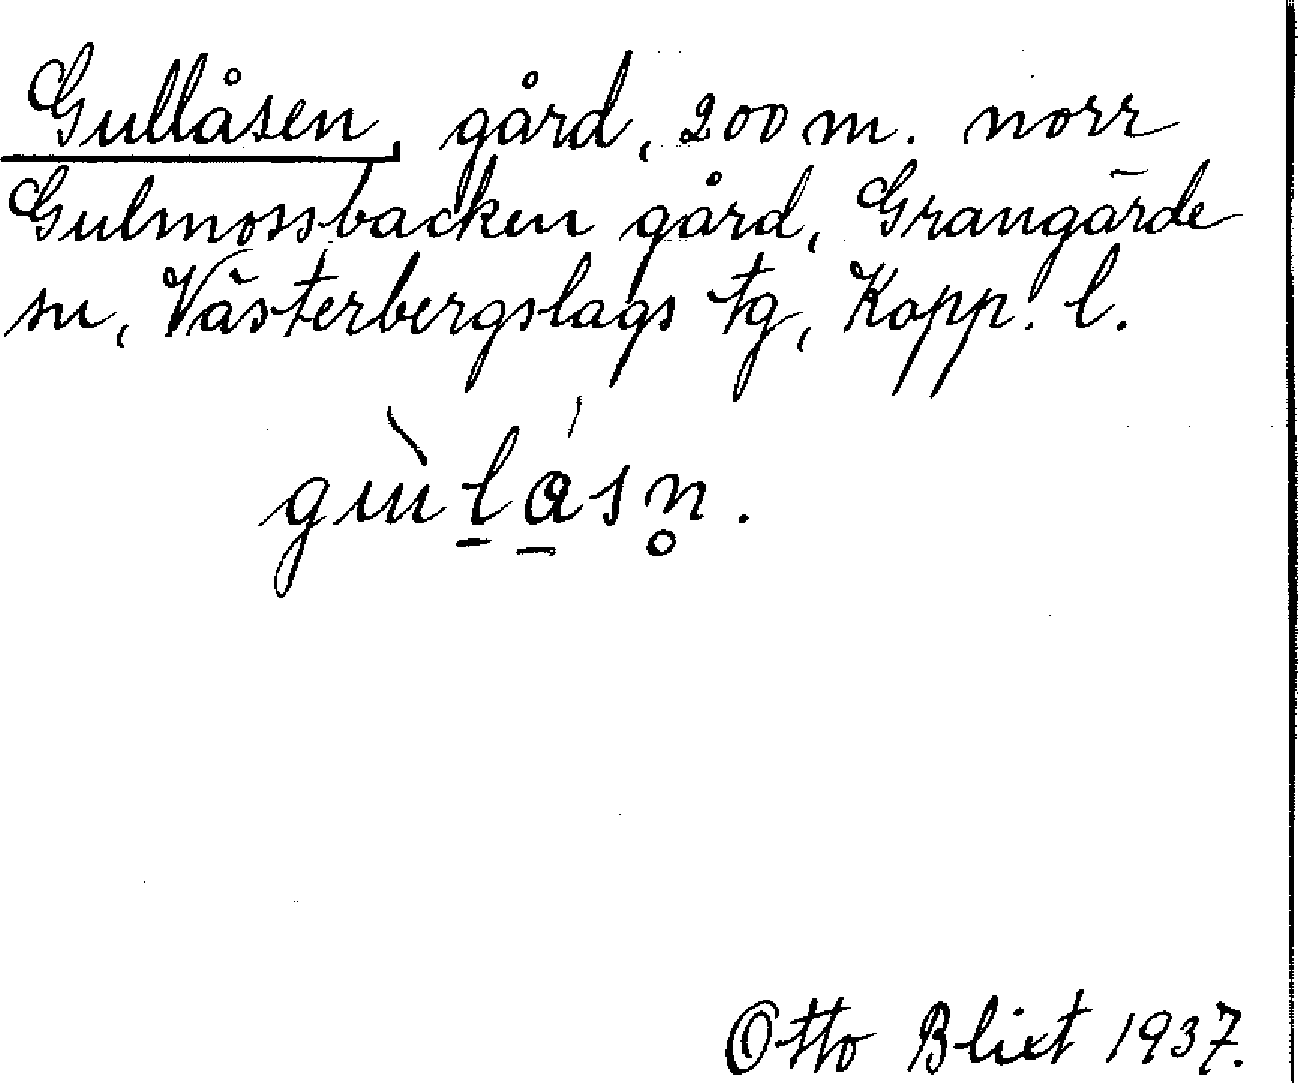 Gullåsen, gård, 200 m. norr
Gulmossbacken gård, Grangärde
sn, Västerbergslags tg, Kopp. l.
gùlåsn̥.
Otto Blixt 1937.